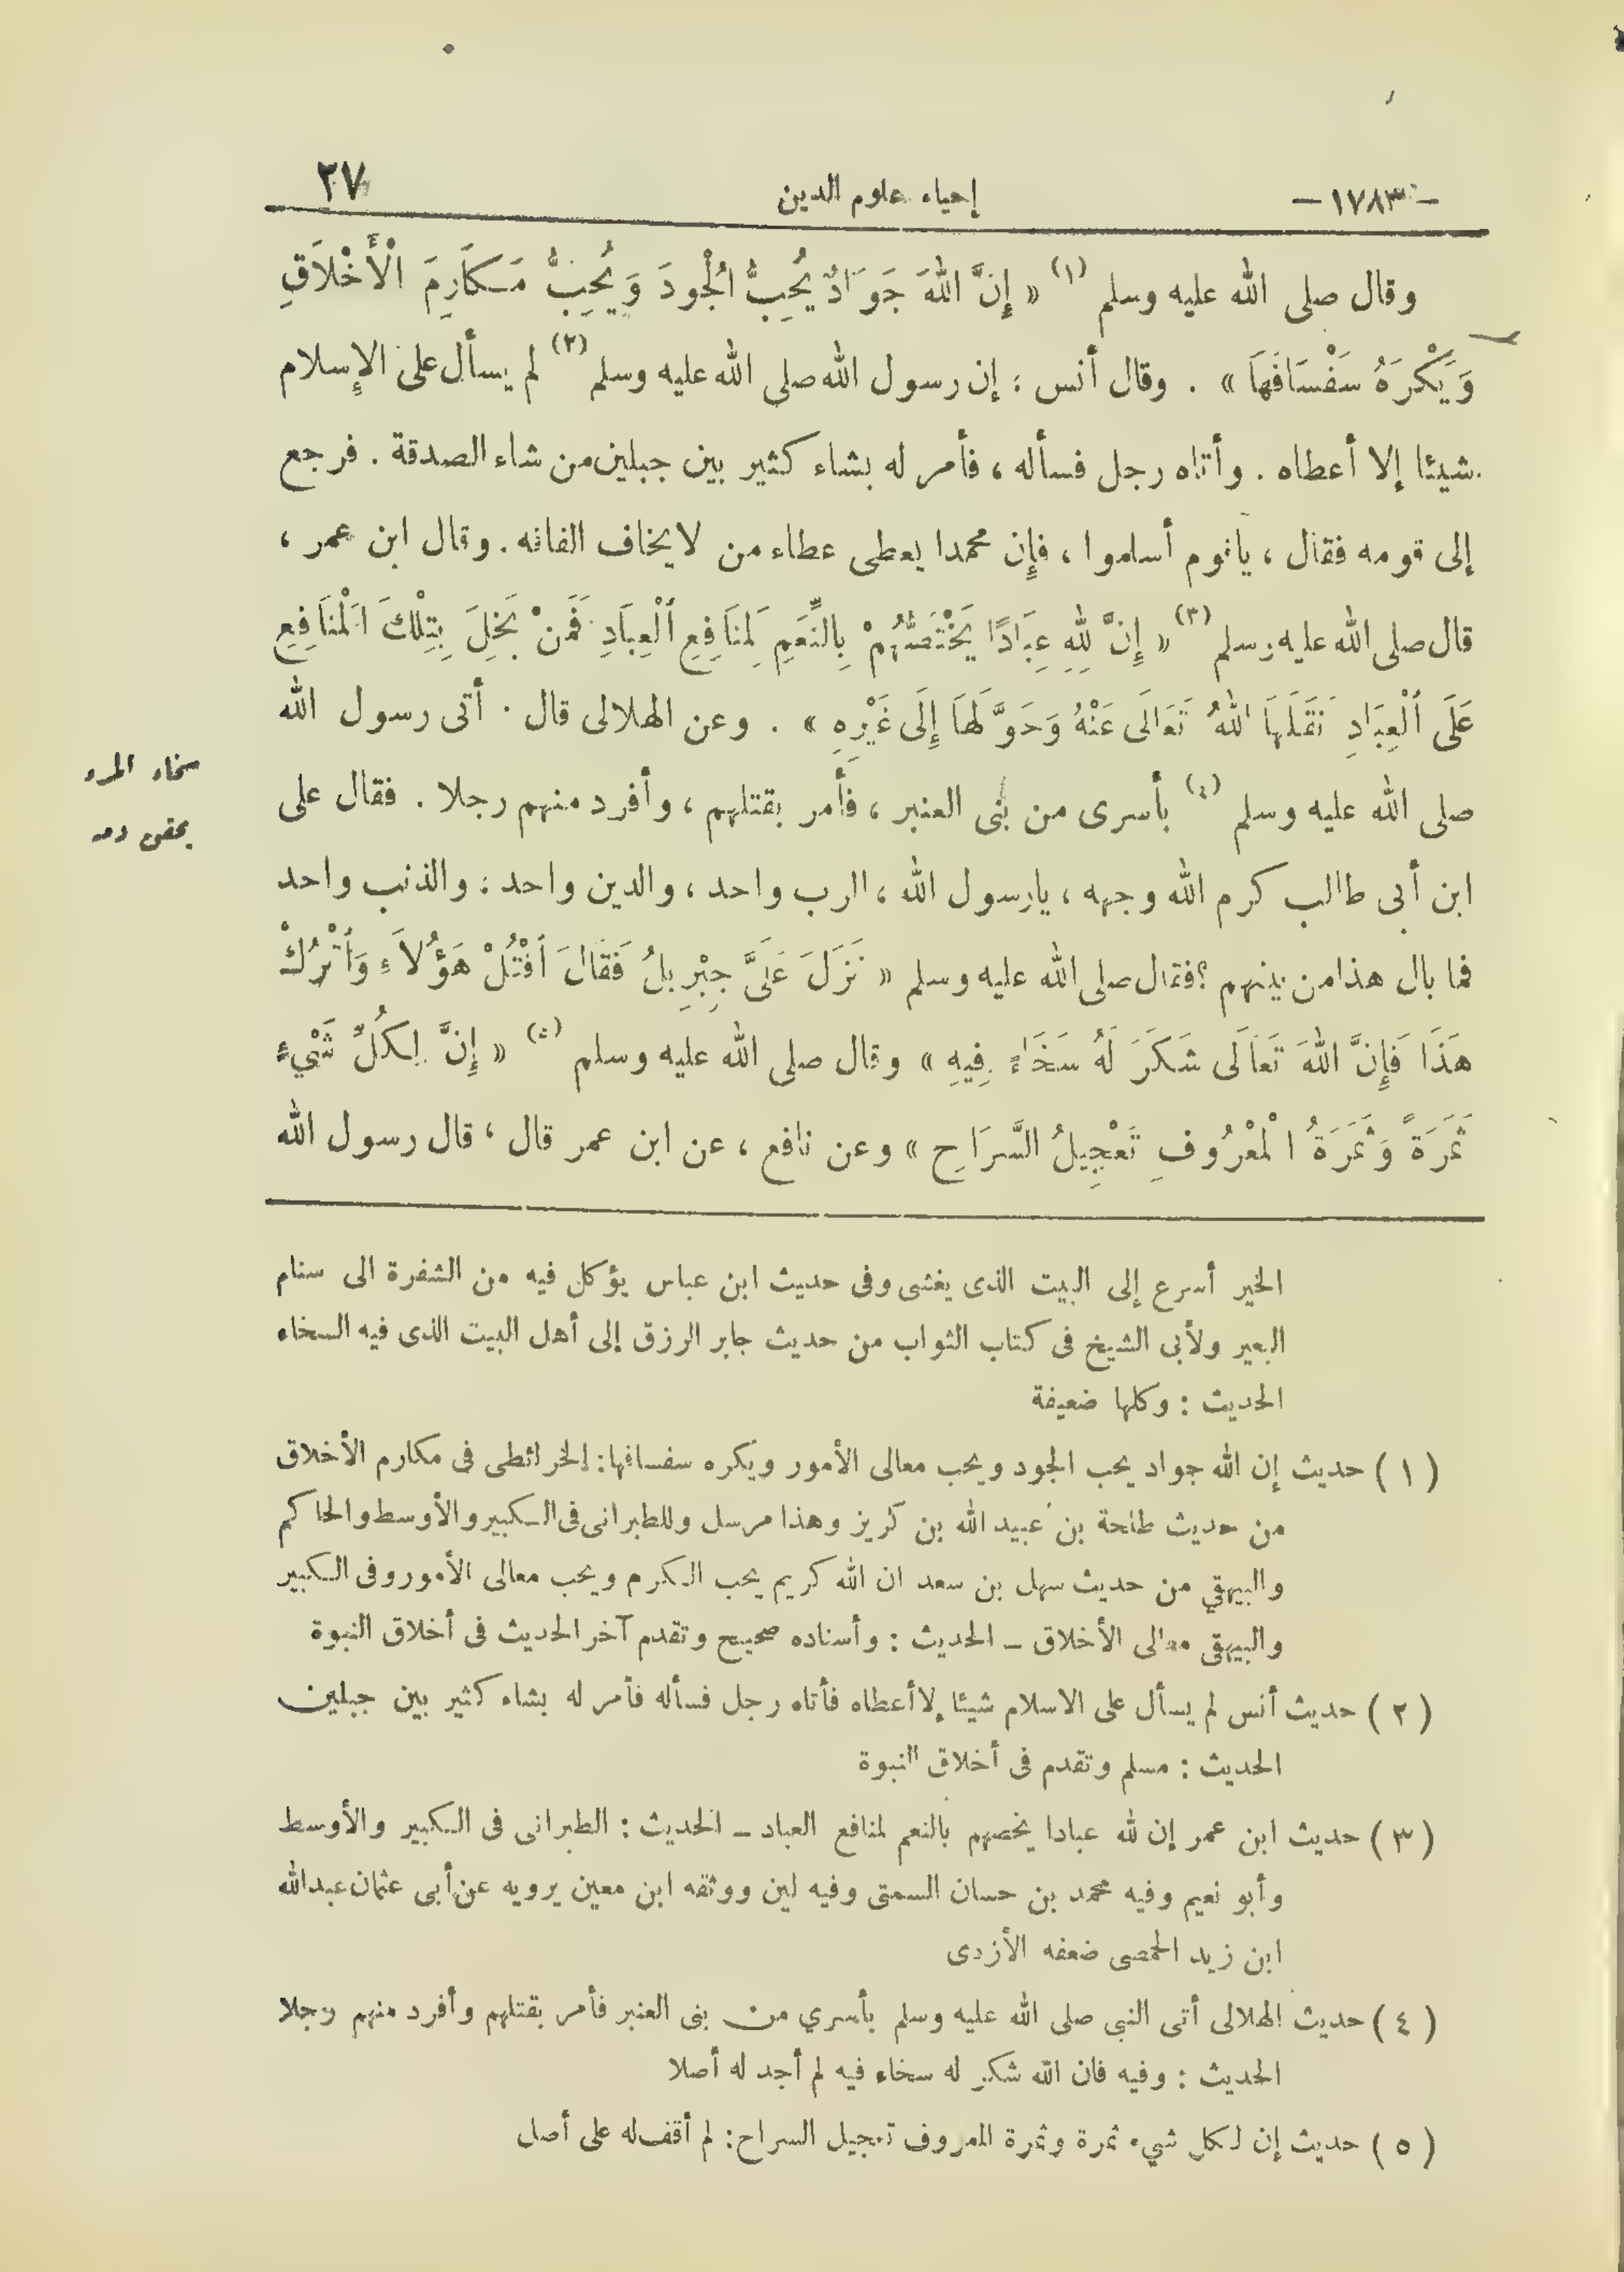 - ١٧٨٣ - إحياء علوم الدين ٢٧
وقال صلى الله عليه وسلم (١) « إِنَّ اللهَ جَوَادٌ يُحِبُّ الْجُودَ وَيُحِبُّ مَكَارِمَ الْأَخْلَاقِ
وَيَكْرَهُ سَفْسَافَهَا » . وقال أنس : إن رسول الله صلى الله عليه وسلم (٢) لم يسأل على الإسلام
شيئا إلا أعطاه . وأتاه رجل فسأله ، فأمر له بشاء كثير بين جبلين من شاء الصدقة . فرجع
إلى قومه فقال ، ياقوم أسلموا ، فإن محمدا يعطى عطاء من لا يخاف الفاقه . وقال ابن عمر ،
قال صلى الله عليه وسلم (٣) « إِنَّ لِلهِ عِبَادًا يَخْتَصُّهُمْ بِالنِّعَمِ لِمَنَافِعِ الْعِبَادِ فَمَنْ بَخِلَ بِتِلْكَ الْمَنَافِعِ
عَلَى الْعِبَادِ نَقَلَهَا اللهُ تَعَالَى عَنْهُ وَحَوَّلَهَا إِلَى غَيْرِهِ » . وعن الهلالى قال . أتى رسول الله
صلى الله عليه وسلم (٤) بأسرى من بنى العنبر ، فأمر بقتلهم ، وأفرد منهم رجلا . فقال على
سخاء المرء
يحقن دمه
ابن أبى طالب كرم الله وجهه ، يارسول الله ، الرب واحد ، والدين واحد ، والذنب واحد
فما بال هذا من بينهم ؟ فقال صلى الله عليه وسلم « نَزَلَ عَلَىَّ جِبْرِيلُ فَقَالَ اقْتُلْ هَؤُلَاءِ وَاتْرُكْ
هَذَا فَإِنَّ اللهَ تَعَالَى شَكَرَ لَهُ سَخَاءً فِيهِ » وقال صلى الله عليه وسلم (٥) « إِنَّ لِكُلِّ شَيْءٍ
ثَمَرَةً وَثَمَرَةُ الْمَعْرُوفِ تَعْجِيلُ السَّرَاحِ » وعن نافع ، عن ابن عمر قال ، قال رسول الله
الخير أسرع إلى البيت الذى يغشى وفى حديث ابن عباس يؤكل فيه من الشفرة الى سنام
البعير ولأبى الشيخ فى كتاب الثواب من حديث جابر الرزق إلى أهل البيت الذى فيه السخاء
الحديث : وكلها ضعيفة
( ١ ) حديث إن الله جواد يحب الجود ويحب معالى الأمور ويكره سفسافها : الخرائطى فى مكارم الأخلاق
من حديث طلحة بن عبيد الله بن كريز وهذا مرسل وللطبرانى فى الكبير والأوسط والحاكم
والبيهقي من حديث سهل بن سعد ان الله كريم يحب الكرم ويحب معالى الأمور وفى الكبير
والبيهقى معالى الأخلاق – الحديث : وأسناده صحيح وتقدم آخر الحديث فى أخلاق النبوة
( ٢ ) حديث أنس لم يسأل على الاسلام شيئا إلا أعطاه فأتاه رجل فسأله فأمر له بشاء كثير بين جبلين
الحديث : مسلم وتقدم فى أخلاق النبوة
( ٣ ) حديث ابن عمر إن لله عبادا يخصهم بالنعم لمنافع العباد – الحديث : الطبرانى فى الكبير والأوسط
وأبو نعيم وفيه محمد بن حسان السمتى وفيه لين ووثقه ابن معين يرويه عن أبى عثمان عبدالله
ابن زيد الحمصى ضعفه الأزدى
( ٤ ) حديث الهلالى أتى النبى صلى الله عليه وسلم بأسري من بنى العنبر فأمر بقتلهم وأفرد منهم رجلا
الحديث : وفيه فان الله شكر له سخاء فيه لم أجد له أصلا
( ٥ ) حديث إن لكل شيء ثمرة وثمرة المعروف تعجيل السراح : لم أقف له على أصل